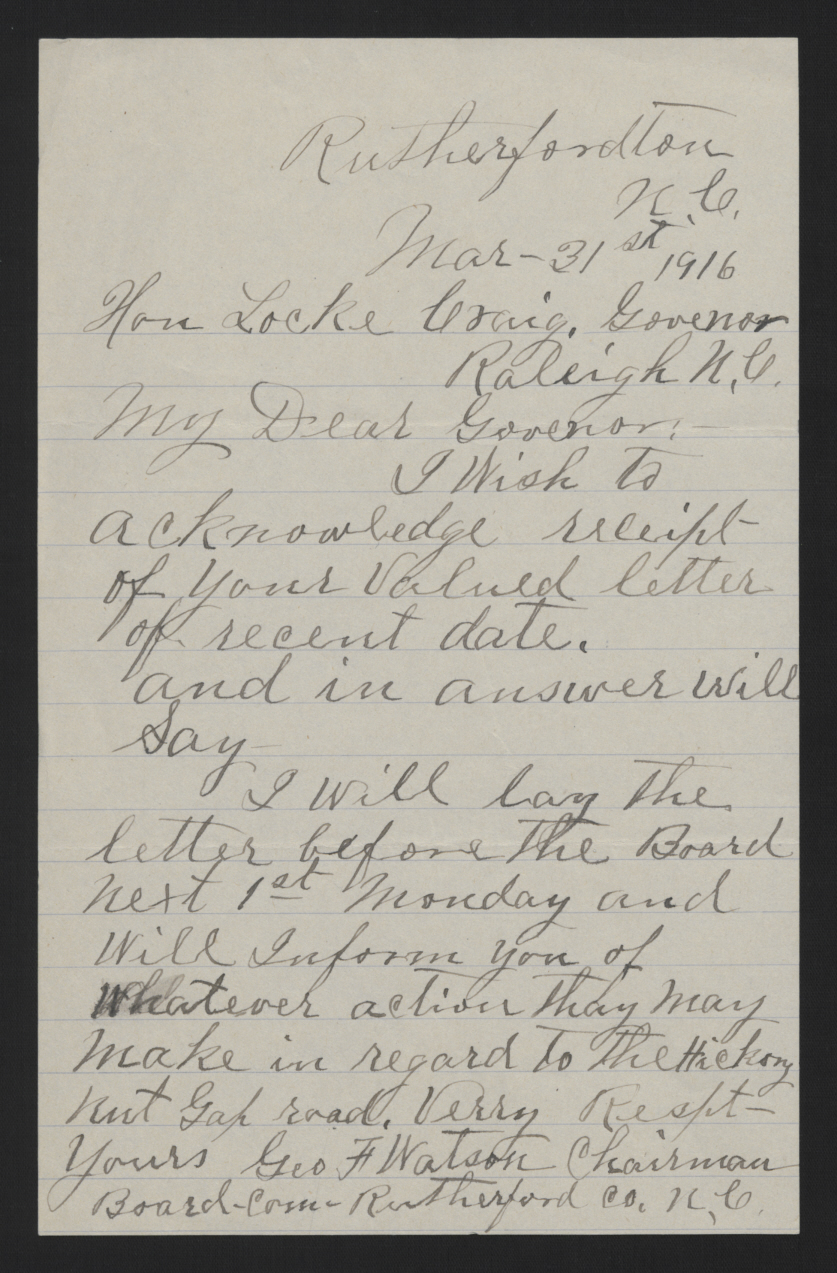 Rutherfordton
N.C.
Mar-31st 1916
Hon Locke Craig, Govenor
Raleigh N.C.
My Dear Govenor:-
I Wish to
acknowledge receipt
of your Valued letter
of recent date.
and in answer will
Say-
I will lay the
letter before the Board
next 1st Monday and
Will Inform you of
Whatever action thay May
Make in regard to the Hickory
nut Gap road. Verry Respt-
Yours Geo F Watson Chairman
Board-Com- Rutherford co. N.C.